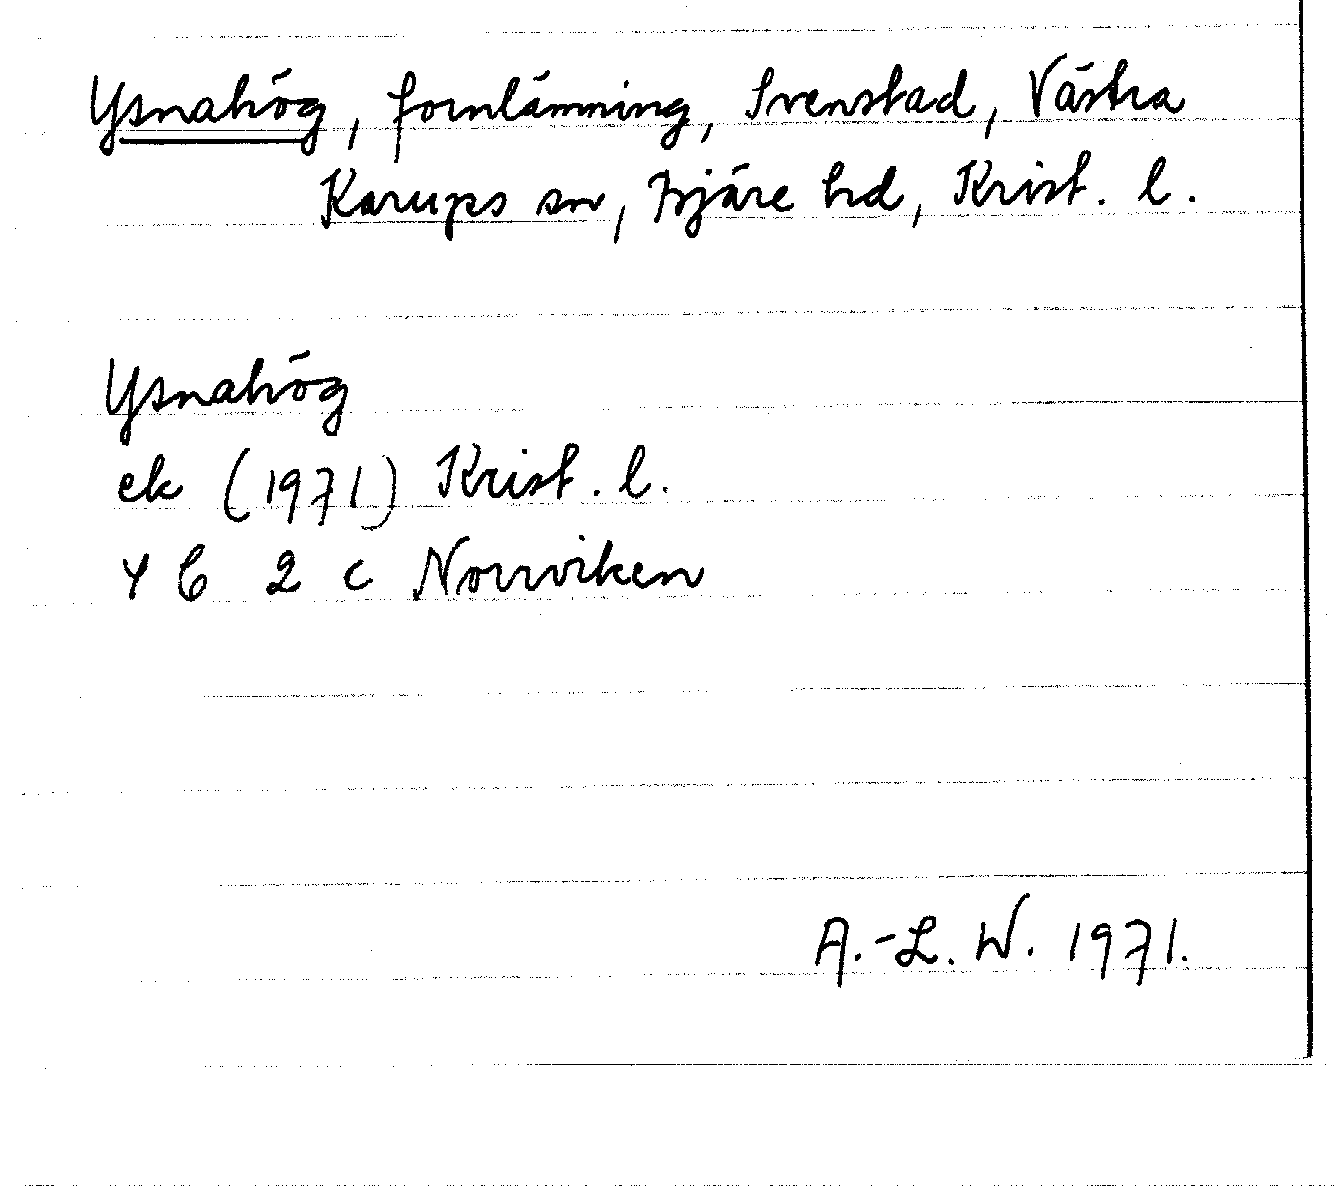 Ysnahög, fornlämning, Svenstad, Västra
Karups sn, Bjäre hd, Krist. l.
Ysnahög
ek (1971) Krist. l.
4 C 2 c Norrviken
A.-L. W. 1971.